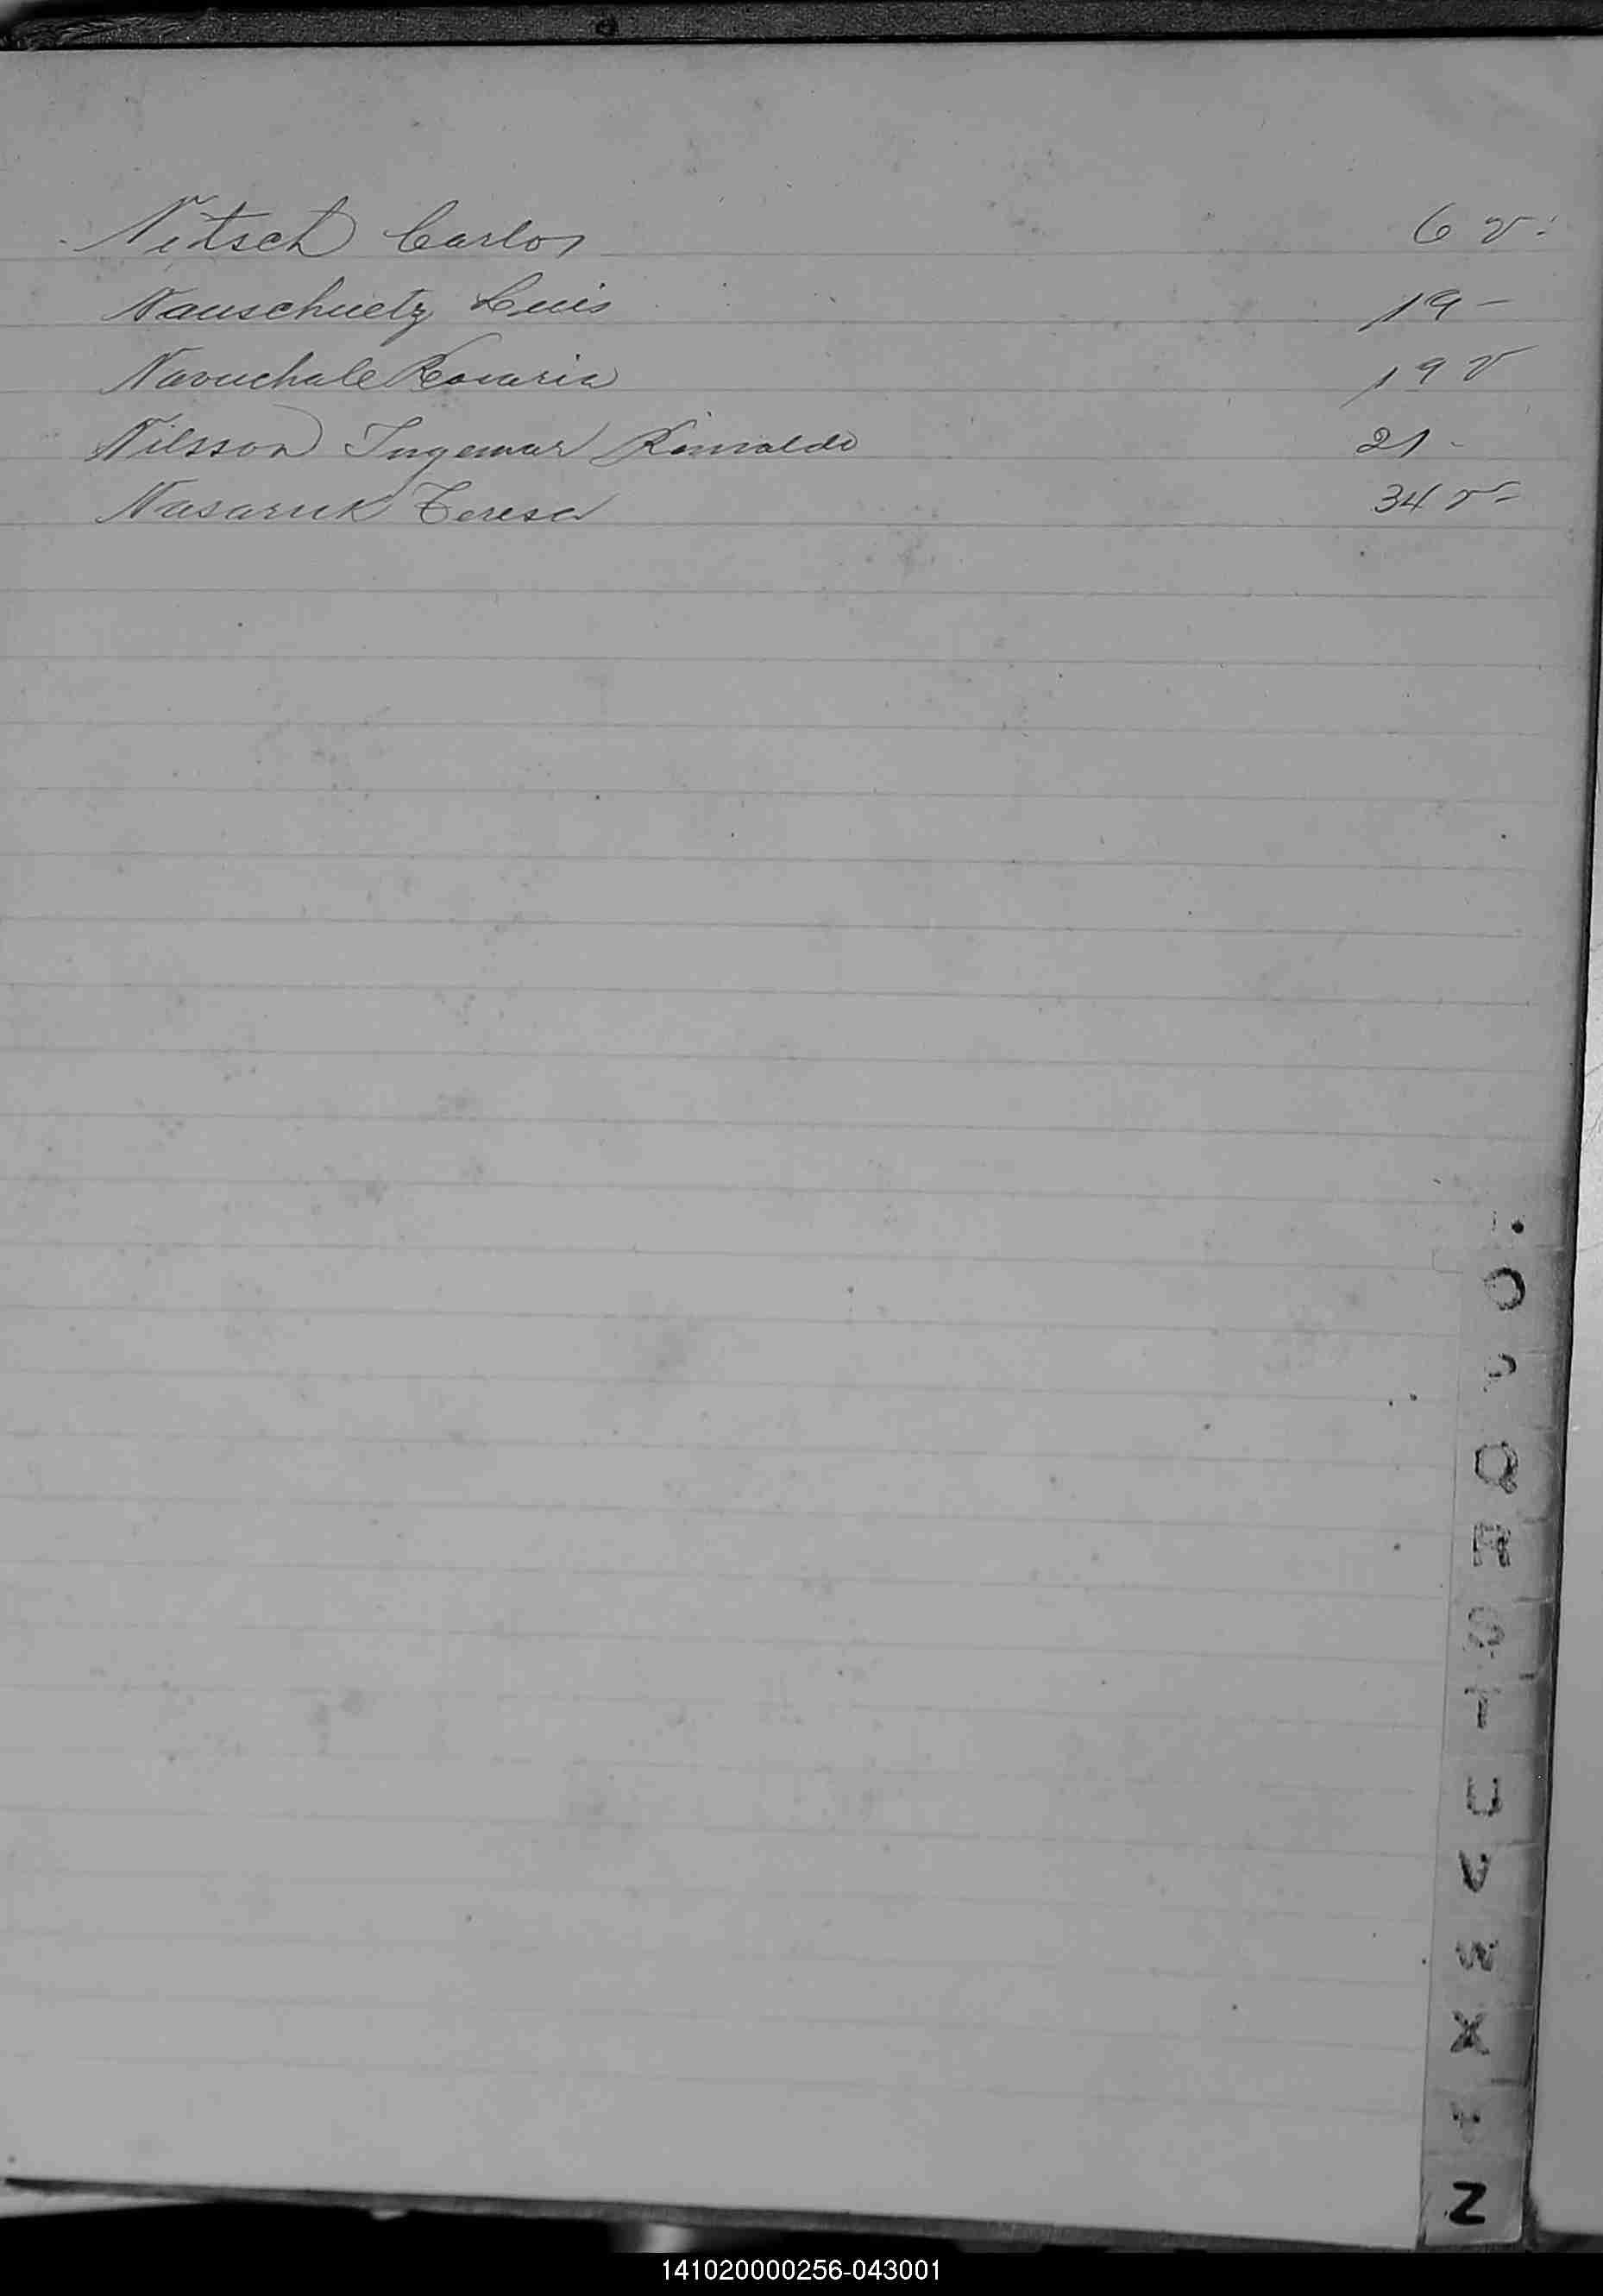 Nitsch Carlos 6 v.
Nauschuetz Luis 19 -
Navuchale 19 v
Nilsson Ingemar Rinaldo 21 -
Nasaruk Teresa 34 v -
O
Q
R
S
T
U
V
W
X
Y
Z
141020000256-043001